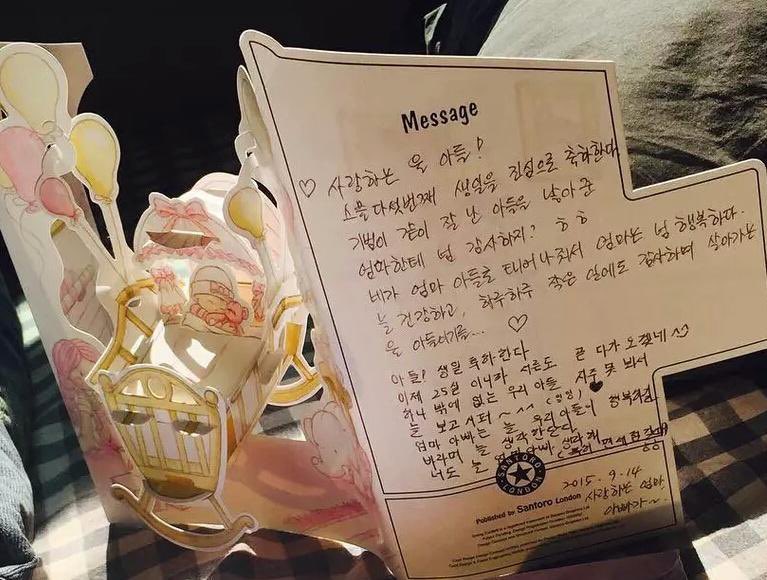 Message
♡ 사랑하는 울 아들!
스물다섯번째 생일을 진심으로 축하한다.
기범이 같이 잘 난 아들을 낳아준
엄마한테 넘 감사하지? ㅎㅎ
네가 엄마 아들로 태어나줘서 엄마는 넘 행복하다.
늘 건강하고, 하루하루 작은 일에도 감사하며 살아가는
울 아들이기를... ♡
아들! 생일 축하한다
이제 25살 이니까 서른도 곧 다가 오겠네 ^^
하나 밖에 없는 우리 아들 자주 못 봐서
늘 보고 싶퍼 ~ ^^
엄마 아빠는 늘 우리 아들이 행복하길
바라며 늘 생각 한단다.
너도 늘 엄마 아빠
2015. 9. 14
사랑하는 엄마
아빠가~
SANTORO LONDON
Published by Santoro London